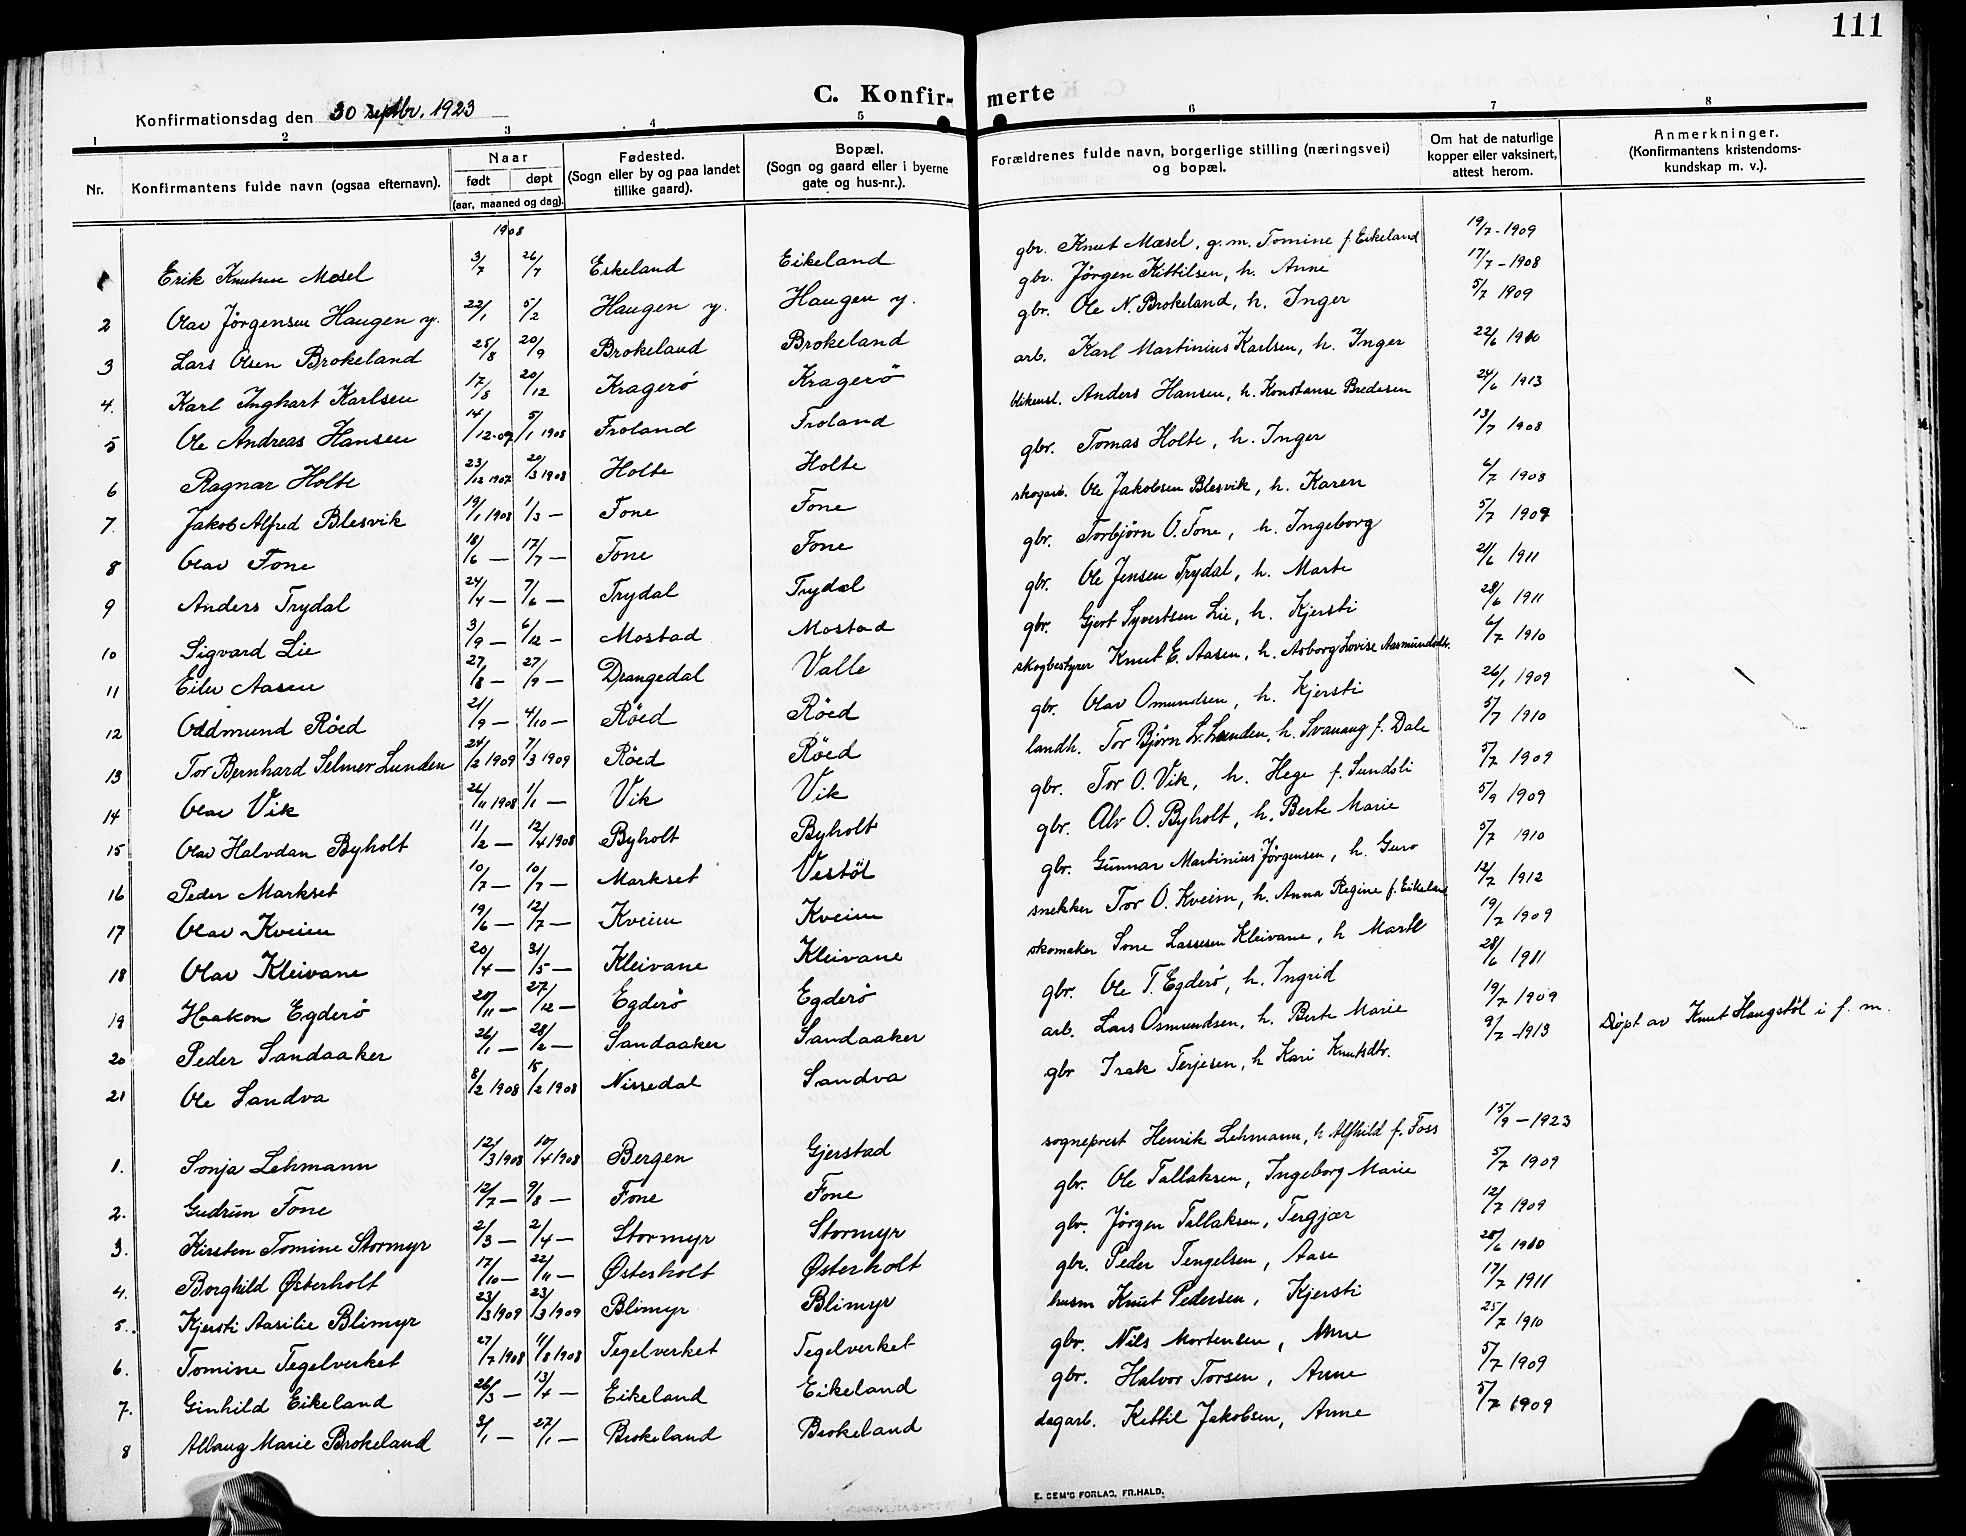 111
C. Konfir- merte
Konfirmationsdag den 30 septbr. 1923
1 2 3 4 5 6 7 8
Nr. Konfirmantens fulde navn (ogsaa efternavn). Naar født døpt (aar, maaned og dag). Fødested. (Sogn eller by og paa landet tillike gaard). Bopæl. (Sogn og gaard eller i byerne gate og hus-nr.). Forældrenes fulde navn, borgerlige stilling (næringsvei) og bopæl. Om hat de naturlige kopper eller vaksinert, attest herom. Anmerkninger. (Konfirmantens kristendoms-kundskap m. v.).
1908
Erik Knutsen Mæsel 3/7 26/7 Eikeland Eikeland gbr. Knut Mæsel, g. m. Tomine f. Eikeland 19/7-1909
2 Olav Jørgensen Haugen y. 22/1 5/2 Haugen y. Haugen y. gbr. Jørgen Kittilsen, h. Anne 17/7-1908
3 Lars Olsen Brokeland 25/8 20/9 Brokeland Brokeland gbr. Ole N. Brokeland, h. Inger 5/7 1909
4. Karl Inghart Karlsen 17/8 20/12 Kragerö Kragerö arb. Karl Martinius Karlsen, h. Inger 22/6 1910
5 Ole Andreas Hansen 14/12-07 5/1 1908 Froland Froland blikensl. Anders Hansen, h. Konstanse Bredesen 24/6 1913
6 Ragnar Holte 23/12 1907 20/3 1908 Holte Holte gbr. Tomas Holte, h. Inger 13/7 1908
7. Jakob Alfred Blesvik 19/1 1908 1/3 — Fone Fone skogarb. Ole Jakobsen Blesvik, h. Karen 6/7 1908
8 Olav Fone 18/6 — 17/7 — Fone Fone gbr. Torbjørn O. Fone, h. Ingeborg 5/7 1909
9 Anders Trydal 24/4 — 7/6 — Trydal Trydal gbr. Ole Jensen Trydal, h. Marte 21/6 1911
10 Sigvard Lie 3/9 — 6/12 — Mostad Mostad gbr. Gjert Syvertsen Lie, h. Kjersti 28/6 1911
11 Eilev Aasen 27/8 — 27/9 — Drangedal Valle skogbestyrer Knut E. Aasen, h. Asborg Lovise Aasmundsdtr. 6/7 1910
12 Oddmund Röed 21/9 — 4/10 — Röed Röed gbr. Olav Omundsen, h. Kjersti 26/1 1909
13 Tor Bernhard Selmer Lunden 24/2 1909 7/3 1909 Röed Röed landh. Tor Bjørn Lr. Lunden, h. Svanaug f. Dale 5/7 1910
14 Olav Vik 26/11 1908 1/1 — Vik Vik gbr. Tor O. Vik, h. Hege f. Sundsli 5/7 1909
15 Olav Halvdan Byholt 11/2 — 12/4 1908 Byholt Byholt gbr. Alv O. Byholt, h. Berte Marie 5/9 1909
16 Peder Markset 10/7 — 10/7 — Markset Vestöl gbr. Gunnar Martinius Jørgensen, h. Guro 5/7 1910
17 Olav Kveim 19/6 — 12/7 — Kveim Kveim snekker Tor O. Kveim, h. Anna Regine f. Eikeland 12/7 1912
18 Olav Kleivane 20/4 — 31/5 — Kleivane Kleivane skomaker Sone Lassesen Kleivane, h Marte 19/7 1909
19 Haakon Egderö 28/11 — 27/12 — Egderö Egderö gbr. Ole T. Egderö, h. Ingrid 28/6 1911
20 Peder Sandaaker 26/1 — 28/2 — Sandaaker Sandaaker arb. Lars Osmundsen, h. Berte Marie 19/7 1909
21 Ole Sandva 8/2 1908 15/2 1908 Nissedal Sandva gbr Isak Terjesen, h Kari Knutsdtr. 9/7-1913 Døpt av Knut Haugstöl i f. m.
1. Sonja Lehmann 12/3 1908 10/4 1908 Bergen Gjerstad sogneprest Henrik Lehmann, h Alfhild f. Foss 15/9-1923
2. Gudrun Fone 12/7 — 9/8 — Fone Fone gbr. Ole Tallaksen, Ingeborg Marie 5/7 1909
3. Kirsten Tomine Stormyr 2/3 — 2/4 — Stormyr Stormyr gbr. Jørgen Tallaksen, Tergjær 12/7 1909
4. Borghild Østerholt 17/10 — 22/11 — Østerholt Østerholt gbr. Peder Tengelsen, Aase 28/6 1910
5. Kjersti Aasilie Blimyr 23/3 1909 23/3 1909 Blimyr Blimyr husm Knut Pedersen, Kjersti 17/7 1911
6. Tomine Tegelverket 27/7 1908 11/8 1908 Tegelverket Tegelverket gbr. Nils Mortensen, Anne 25/7 1910
7. Ginhild Eikeland 26/3 — 13/4 — Eikeland Eikeland gbr. Halvor Torsen, Anne 5/7 1909
8 Albaug Marie Brokeland 3/1 — 27/1 — Brokeland Brokeland dagarb. Kittil Jakobsen, Anne 5/7 1909
E. SEM'S FORLAG, FR.HALD.